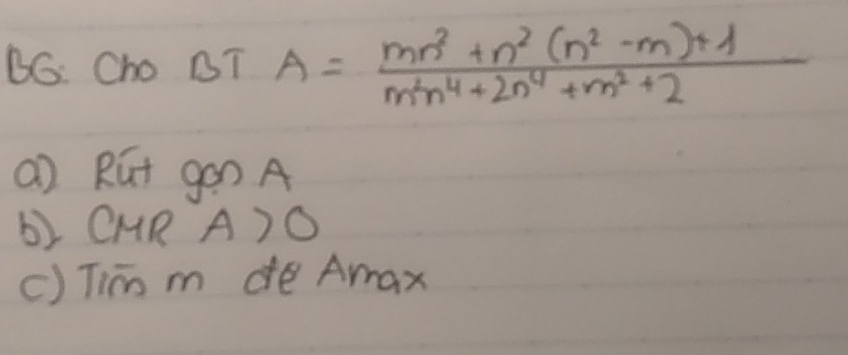 B6: Cho BT A = \frac{mn^2 + n^2 (n^2 - m) + 1}{m^2n^4 + 2n^4 + m^2 + 2}
a) Rút gọn A
b) CMR A > 0
c) Tìm m để Amax